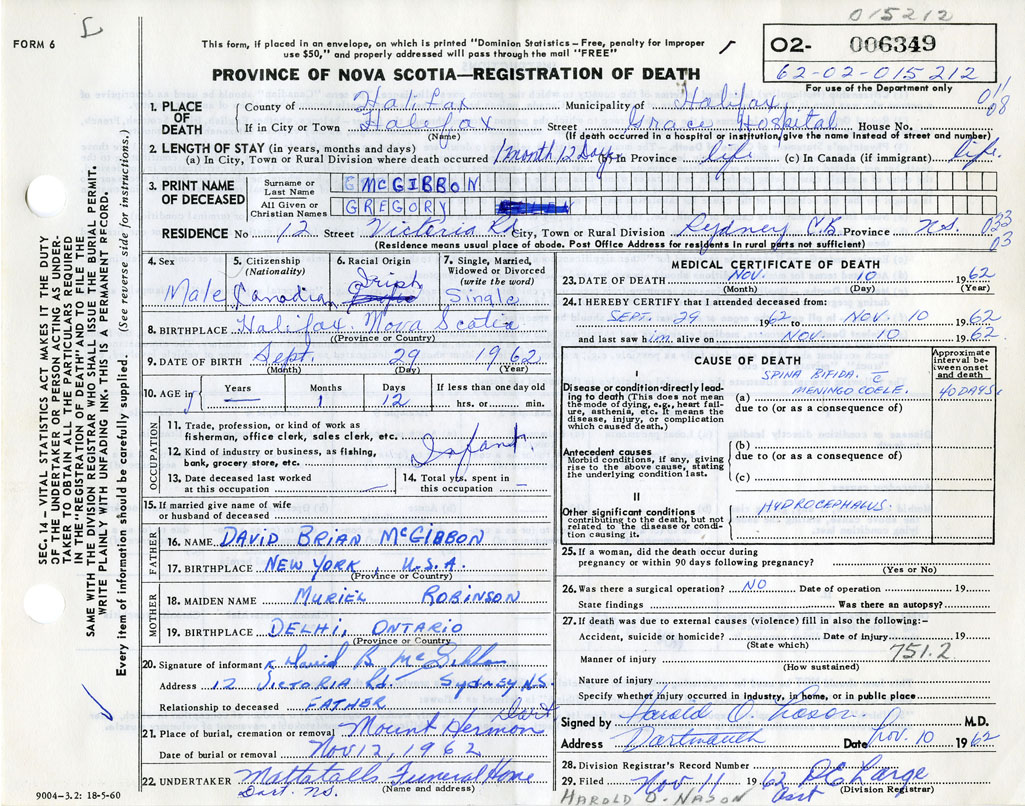 015212
FORM 6
This form, if placed in an envelope, on which is printed "Dominion Statistics – Free, penalty for improper
use $50," and properly addressed will pass through the mail "FREE"
O2- 006349
62-02-015212
For use of the Department only
PROVINCE OF NOVA SCOTIA—REGISTRATION OF DEATH
1. PLACE OF DEATH
County of Halifax Municipality of Halifax
If in City or Town Halifax Street Grace Hospital House No.
(Name) (If death occurred in a hospital or institution, give the name instead of street and number)
08
2. LENGTH OF STAY (in years, months and days)
(a) In City, Town or Rural Division where death occurred 1 month 12 Days (b) In Province life (c) In Canada (if immigrant) life
3. PRINT NAME OF DECEASED
Surname or Last Name McGIBBON
All Given or Christian Names GREGORY
RESIDENCE No 12 Street Victoria Rd City, Town or Rural Division Sydney C.B. Province N.S.
(Residence means usual place of abode. Post Office Address for residents in rural parts not sufficient)
033
03
4. Sex Male
5. Citizenship (Nationality) Canadian
6. Racial Origin Irish
7. Single, Married, Widowed or Divorced (write the word) Single
8. BIRTHPLACE Halifax Nova Scotia
(Province or Country)
9. DATE OF BIRTH Sept. 29 1962
(Month) (Day) (Year)
10. AGE in Years — Months 1 Days 12 If less than one day old hrs. or min.
OCCUPATION
11. Trade, profession, or kind of work as
fisherman, office clerk, sales clerk, etc.
Infant
12. Kind of industry or business, as fishing,
bank, grocery store, etc.
13. Date deceased last worked
at this occupation —
14. Total yrs. spent in
this occupation —
15. If married give name of wife
or husband of deceased
FATHER
16. NAME DAVID BRIAN McGIBBON
17. BIRTHPLACE NEW YORK, U.S.A.
(Province or Country)
MOTHER
18. MAIDEN NAME MURIEL ROBINSON
19. BIRTHPLACE DELHI, ONTARIO
(Province or Country)
20. Signature of informant David B. McGibbon
Address 12 VICTORIA Rd. SYDNEY N.S.
Relationship to deceased FATHER
21. Place of burial, cremation or removal Mount Hermon Dart
Date of burial or removal Nov 12, 1962
22. UNDERTAKER Mattatalls Funeral Home
Dart. N.S. (Name and address)
MEDICAL CERTIFICATE OF DEATH
23. DATE OF DEATH Nov. 10 1962
(Month) (Day) (Year)
24. I HEREBY CERTIFY that I attended deceased from:
SEPT. 29 1962 to NOV. 10 1962
and last saw him alive on NOV. 10 1962
CAUSE OF DEATH
Approximate interval between onset and death
I
Disease or condition directly leading to death (This does not mean the mode of dying, e.g., heart failure, asthenia, etc. It means the disease, injury, or complication which caused death.)
SPINA BIFIDA c̄
(a) MENINGO COELE. 40 DAYS.
due to (or as a consequence of)
Antecedent causes
Morbid conditions, if any, giving rise to the above cause, stating the underlying condition last.
(b)
due to (or as a consequence of)
(c)
II
Other significant conditions
contributing to the death, but not related to the disease or condition causing it.
HYDROCEPHALUS.
25. If a woman, did the death occur during
pregnancy or within 90 days following pregnancy?
(Yes or No)
26. Was there a surgical operation? NO Date of operation 19
State findings Was there an autopsy?
27. If death was due to external causes (violence) fill in also the following:-
Accident, suicide or homicide? Date of injury 19
(State which) 751.2
Manner of injury
(How sustained)
Nature of injury
Specify whether injury occurred in industry, in home, or in public place
Signed by Harold O. Nason M.D.
Address Dartmouth Date Nov. 10 1962
28. Division Registrar's Record Number
29. Filed Nov 11 1962 D E Large
(Division Registrar)
HAROLD O. NASON Asst
SEC. 14 – VITAL STATISTICS ACT MAKES IT THE DUTY
OF THE UNDERTAKER OR PERSON ACTING AS UNDER-
TAKER TO OBTAIN ALL THE PARTICULARS REQUIRED
IN THE "REGISTRATION OF DEATH" AND TO FILE THE
SAME WITH THE DIVISION REGISTRAR WHO SHALL ISSUE THE BURIAL PERMIT.
WRITE PLAINLY WITH UNFADING INK. THIS IS A PERMANENT RECORD.
Every item of information should be carefully supplied. (See reverse side for instructions.)
9004-3.2: 18-5-60